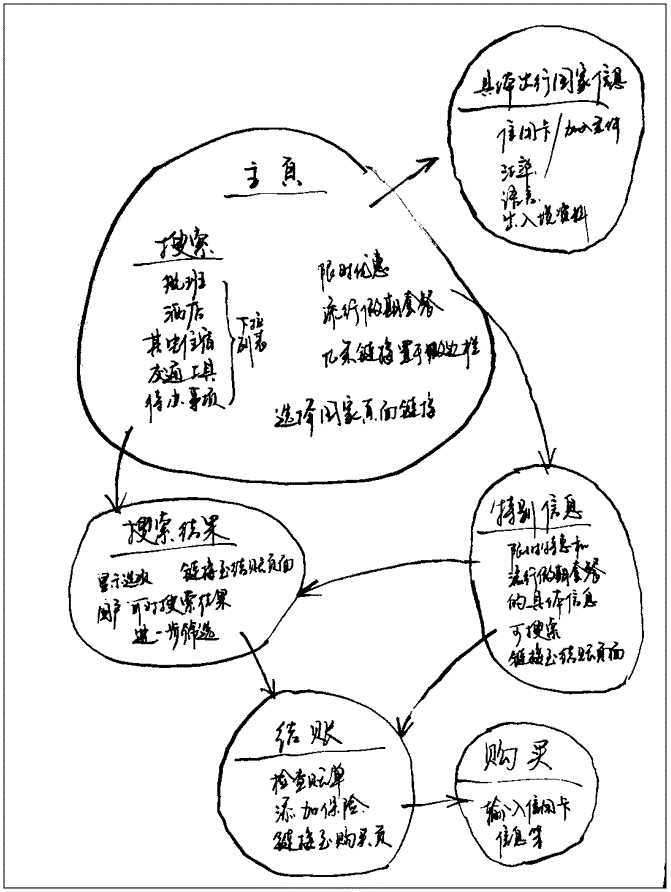 具体出行国家信息
信用卡/加入文件
汇率
语言
出入境资料
主页
搜索
航班
酒店
其它住宿
交通工具
待办事项
下拉
列表
限时优惠
流行假期套餐
链接置于
选择国家页面链接
搜索结果
显示选项 链接至结账页面
用户可对搜索结果
进一步筛选
特别信息
限时特惠和
流行假期套餐
的具体信息
可搜索
链接至结账页面
结账
检查账单
添加保险
链接至购买页
购买
输入信用卡
信息等